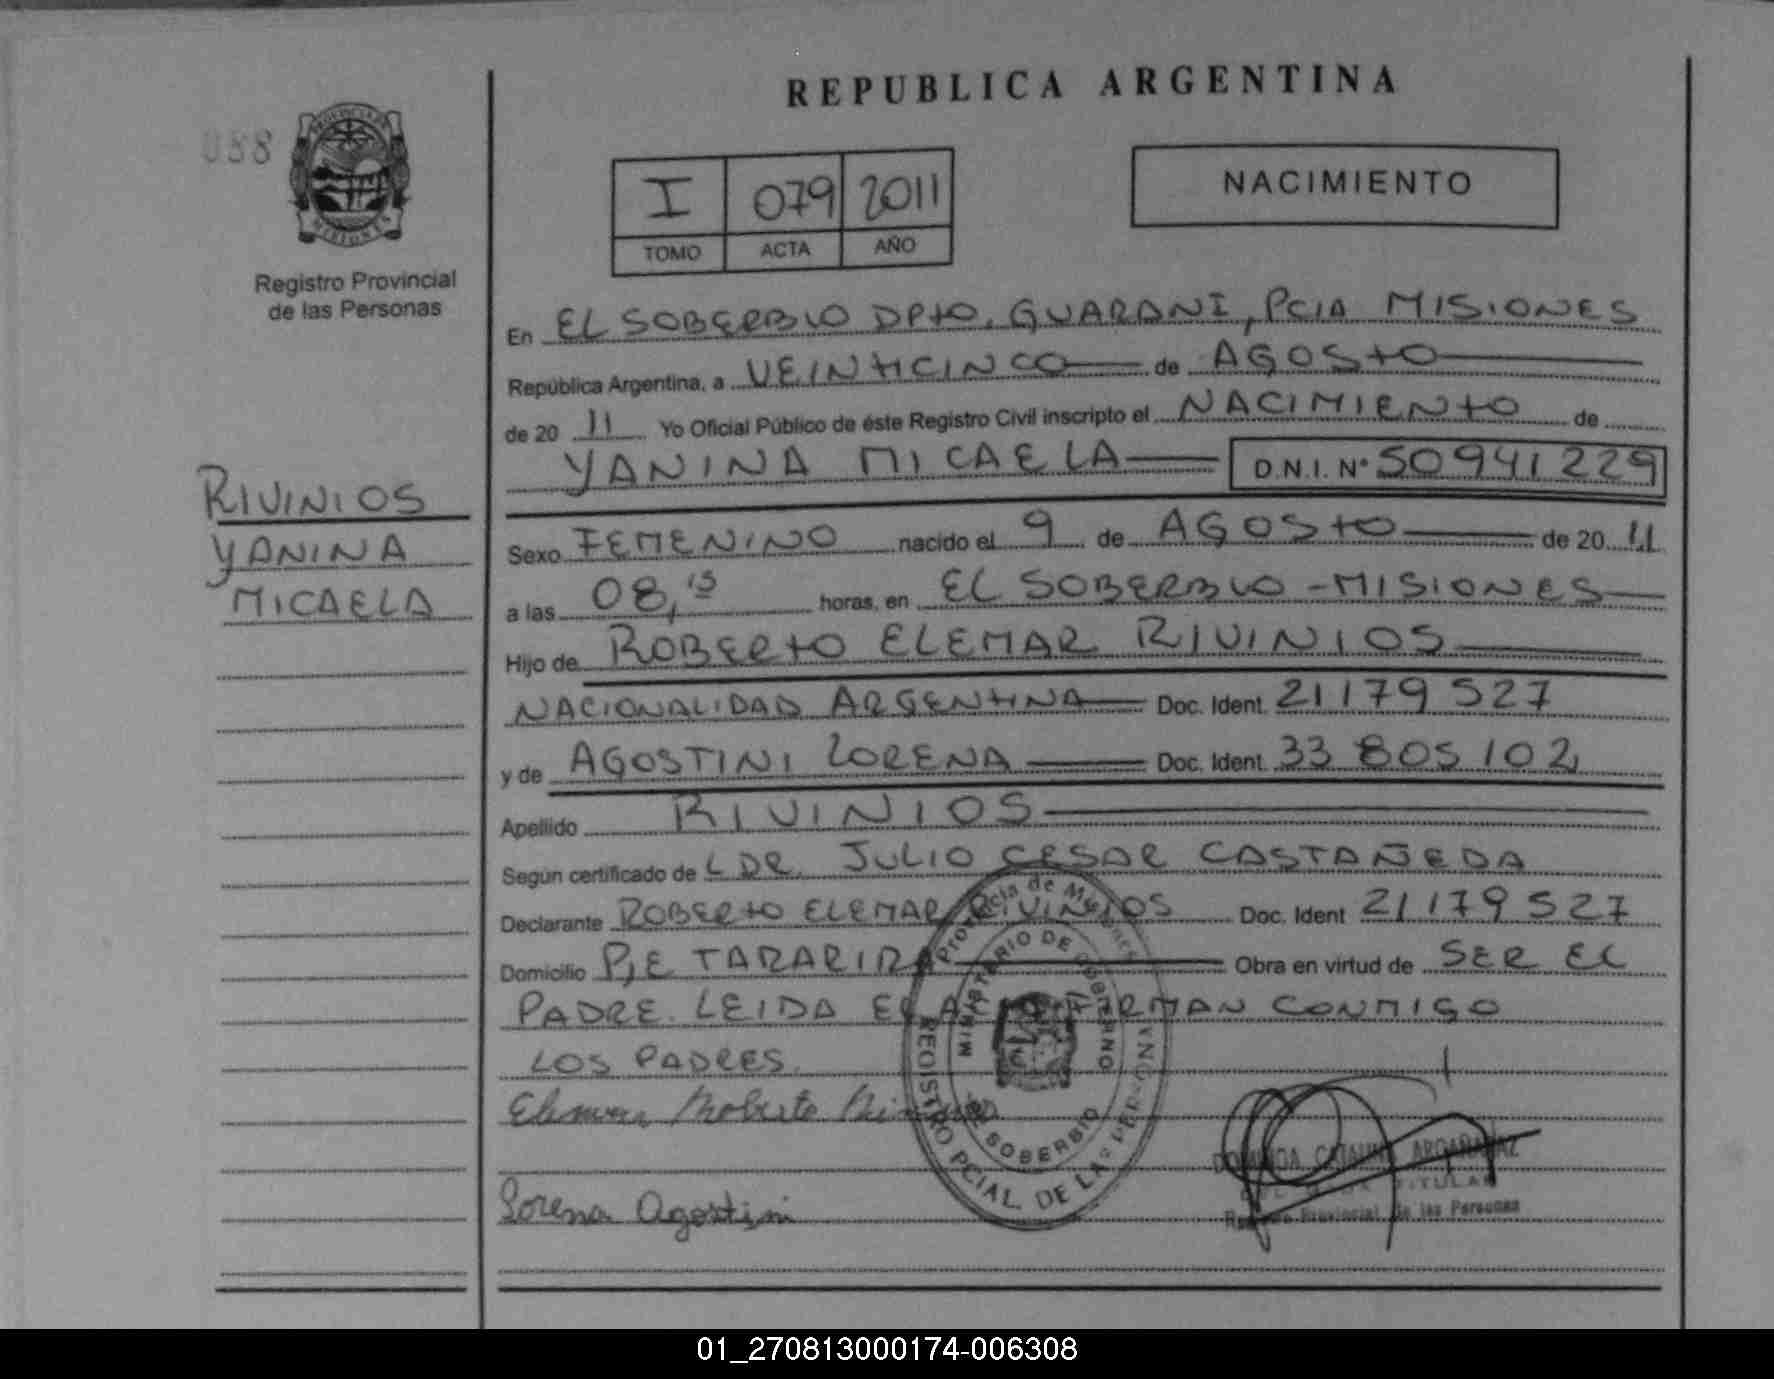 REPUBLICA ARGENTINA
088
PROVINCIA DE
MISIONES
Registro Provincial
de las Personas
I 079 2011
TOMO ACTA AÑO
NACIMIENTO
En EL SOBERBIO DPTO. GUARANI, PCIA MISIONES
República Argentina, a VEINTICINCO de AGOSTO
de 20 11 Yo Oficial Público de éste Registro Civil inscripto el NACIMIENTO de
YANINA MICAELA D.N.I. N° 50941229
RIVINIOS
YANINA
MICAELA
Sexo FEMENINO nacido el 9 de AGOSTO de 20 11
a las 08,15 horas, en EL SOBERBIO - MISIONES
Hijo de ROBERTO ELEMAR RIVINIOS
NACIONALIDAD ARGENTINA Doc. Ident. 21179527
y de AGOSTINI LORENA Doc. Ident. 33 805102
Apellido RIVINIOS
Según certificado de L DR. JULIO CESAR CASTAÑEDA
Declarante ROBERTO ELEMAR RIVINIOS Doc. Ident 21179527
Domicilio PJE TARARIRA Obra en virtud de SER EL
PADRE. LEIDA EL ACTA FIRMAN CONMIGO
LOS PADRES.
Provincia de Misiones
MINISTERIO DE GOBIERNO
SOBERBIO
REGISTRO PCIAL. DE LAS PERSONAS
Roberto
Lorena Agostini
CATALINA ARGAÑARAZ
TITULAR
Provincial de las Personas
01_270813000174-006308